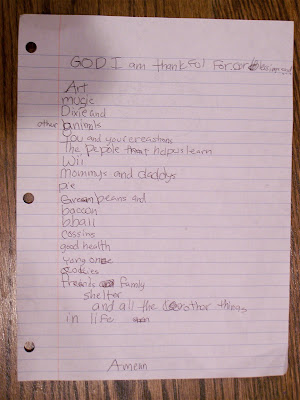 GOD I am thankful For.
Art
music
Dixie and
other animals
You and your creations
The pepole that help us learn
Wii
Mommys and daddys
pie
Green beans and
bacoon
bball
cossins
good health
Yung one
goodies
friends family
shelter
and all the other things
in life
Amean